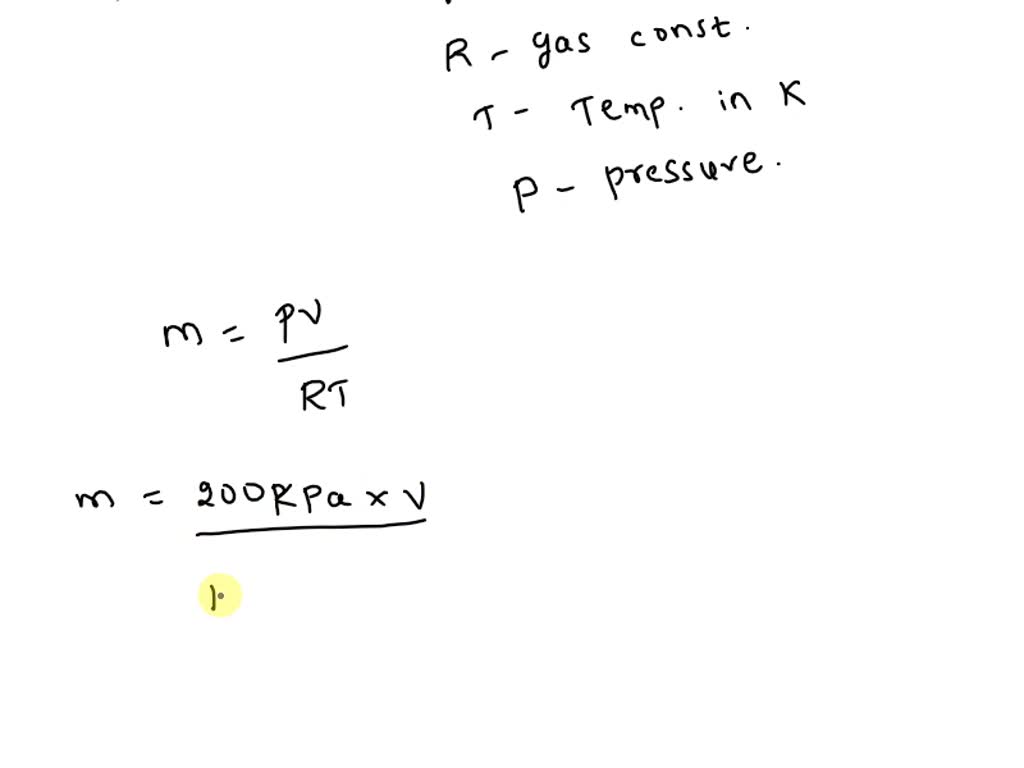 R - gas const.
T - Temp. in K
P - pressure.
m = PV
RT
m = 200KPa x V